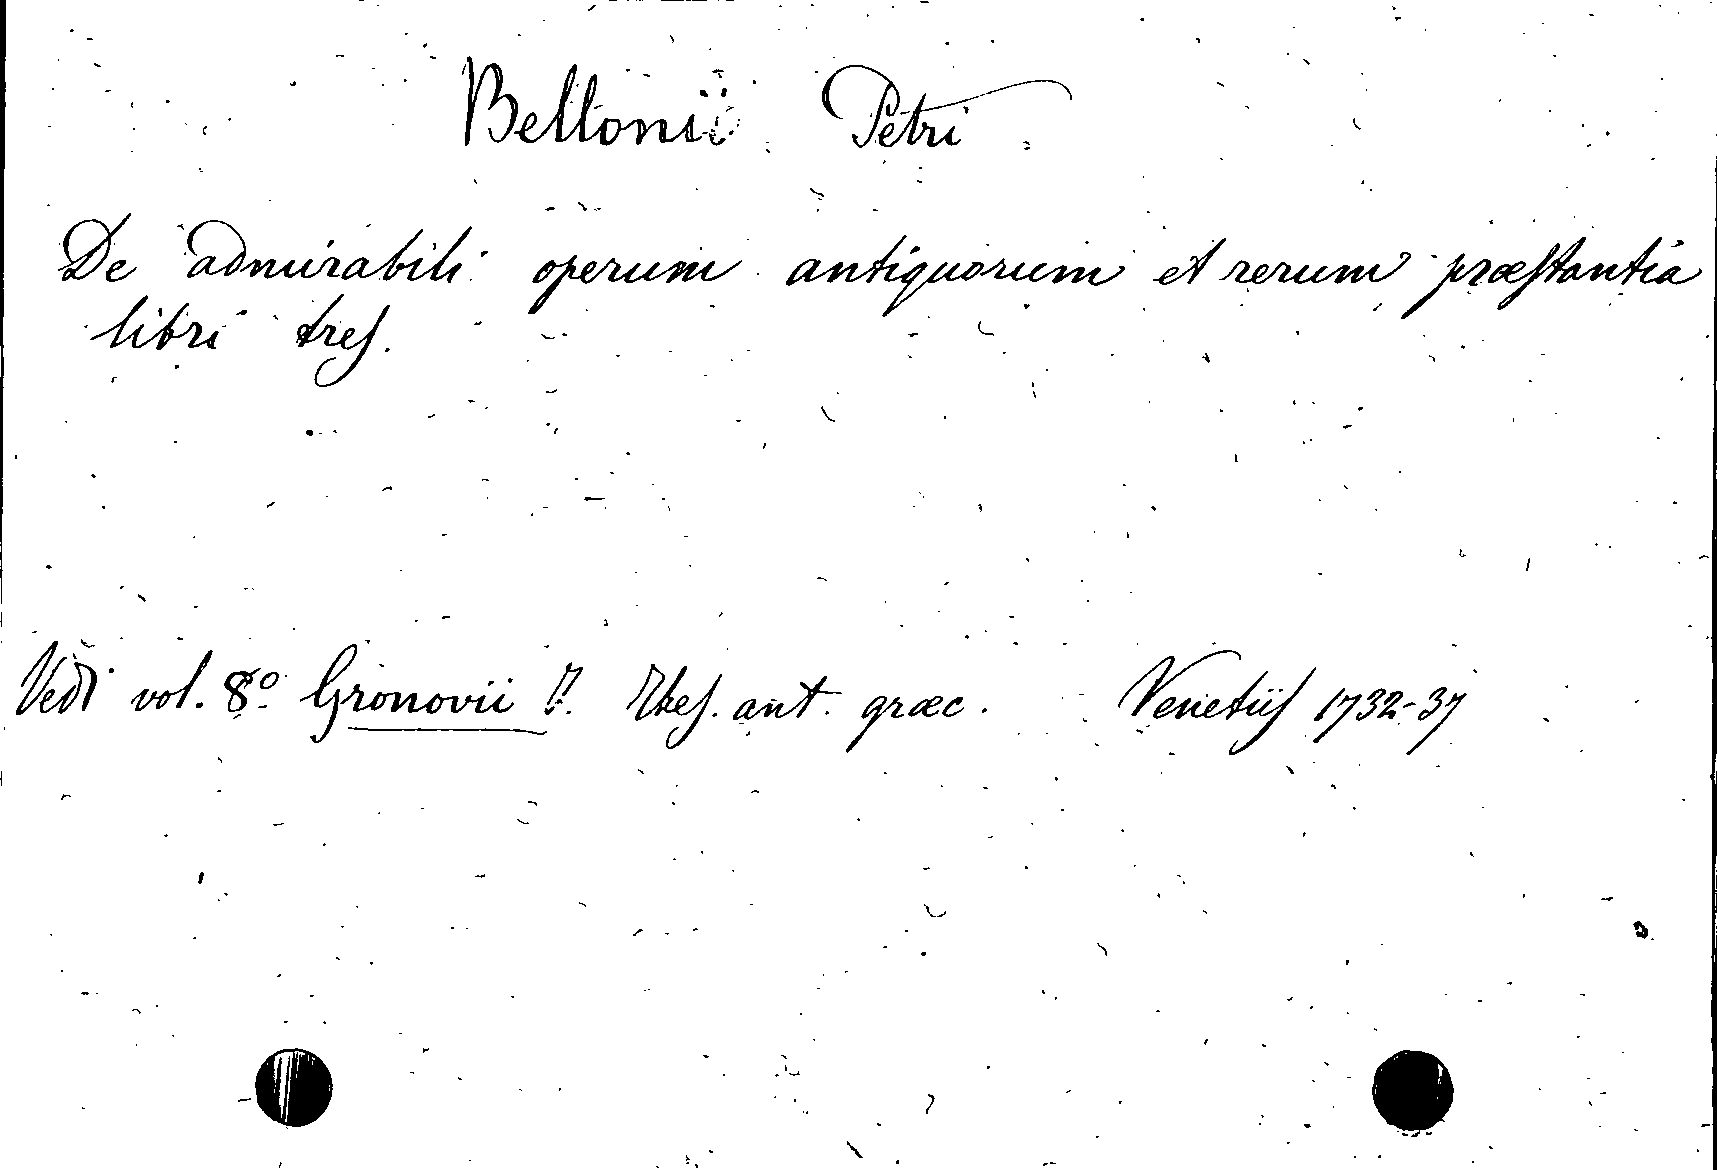 Bellonii Petri
De admirabili operum antiquorum et rerum præstantia
libri tres.
Vedi vol. 8º Gronovii Thes. ant. græc. Venetiis 1732-37